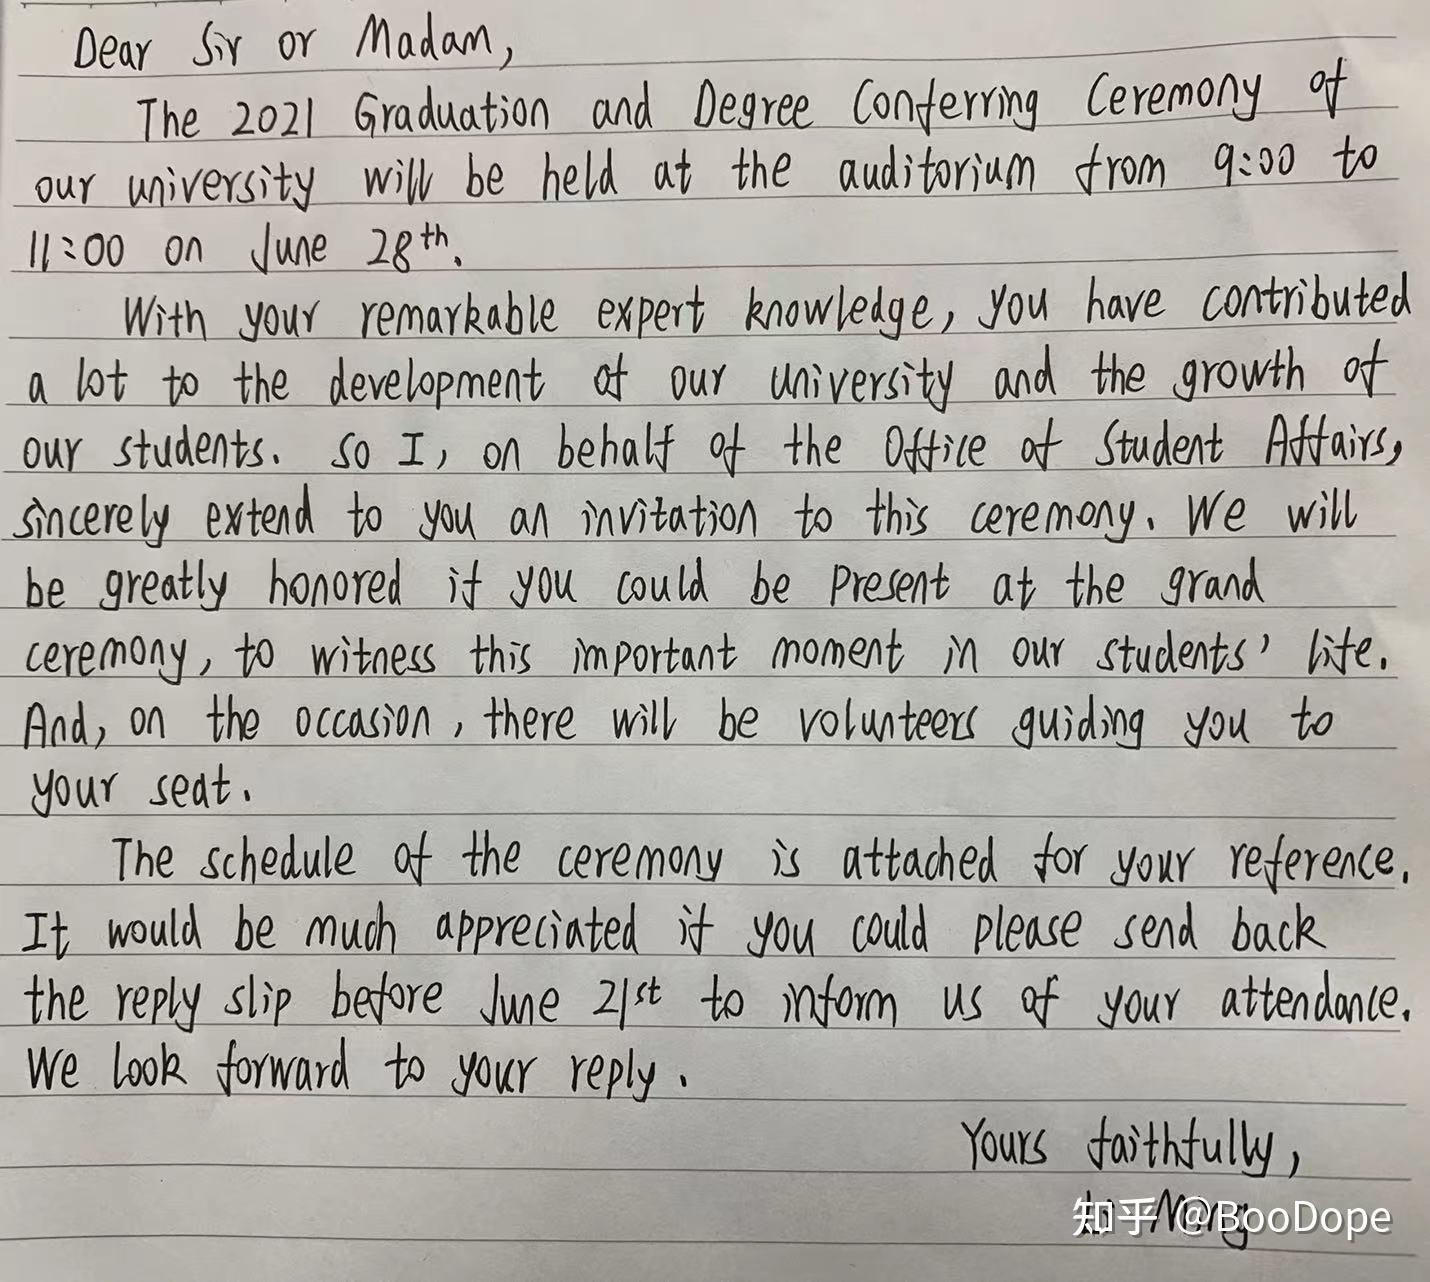 Dear Sir or Madam,
The 2021 Graduation and Degree Conferring Ceremony of
our university will be held at the auditorium from 9:00 to
11:00 on June 28th.
With your remarkable expert knowledge, you have contributed
a lot to the development of our university and the growth of
our students. So I, on behalf of the Office of Student Affairs,
sincerely extend to you an invitation to this ceremony. We will
be greatly honored if you could be present at the grand
ceremony, to witness this important moment in our students' life.
And, on the occasion, there will be volunteers guiding you to
your seat.
The schedule of the ceremony is attached for your reference.
It would be much appreciated if you could please send back
the reply slip before June 21st to inform us of your attendance.
We look forward to your reply.
Yours faithfully,
Ming
知乎 @BooDope